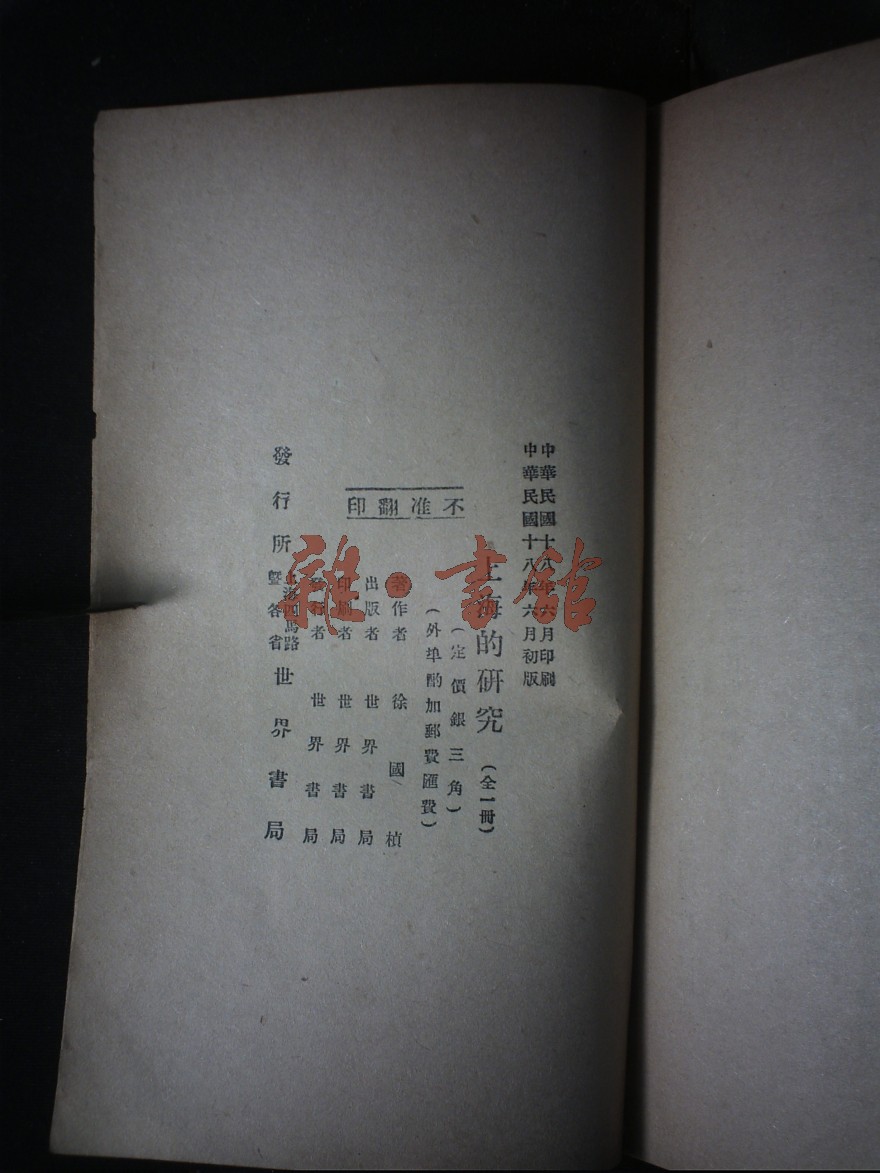 中華民國十八年六月印刷
中華民國十八年六月初版
上海的研究（全一冊）
（定價銀三角）
（外埠酌加郵費匯費）
不准翻印
著作者 徐國楨
出版者 世界書局
印刷者 世界書局
發行者 世界書局
發行所 上海四馬路暨各省 世界書局
雜·書館